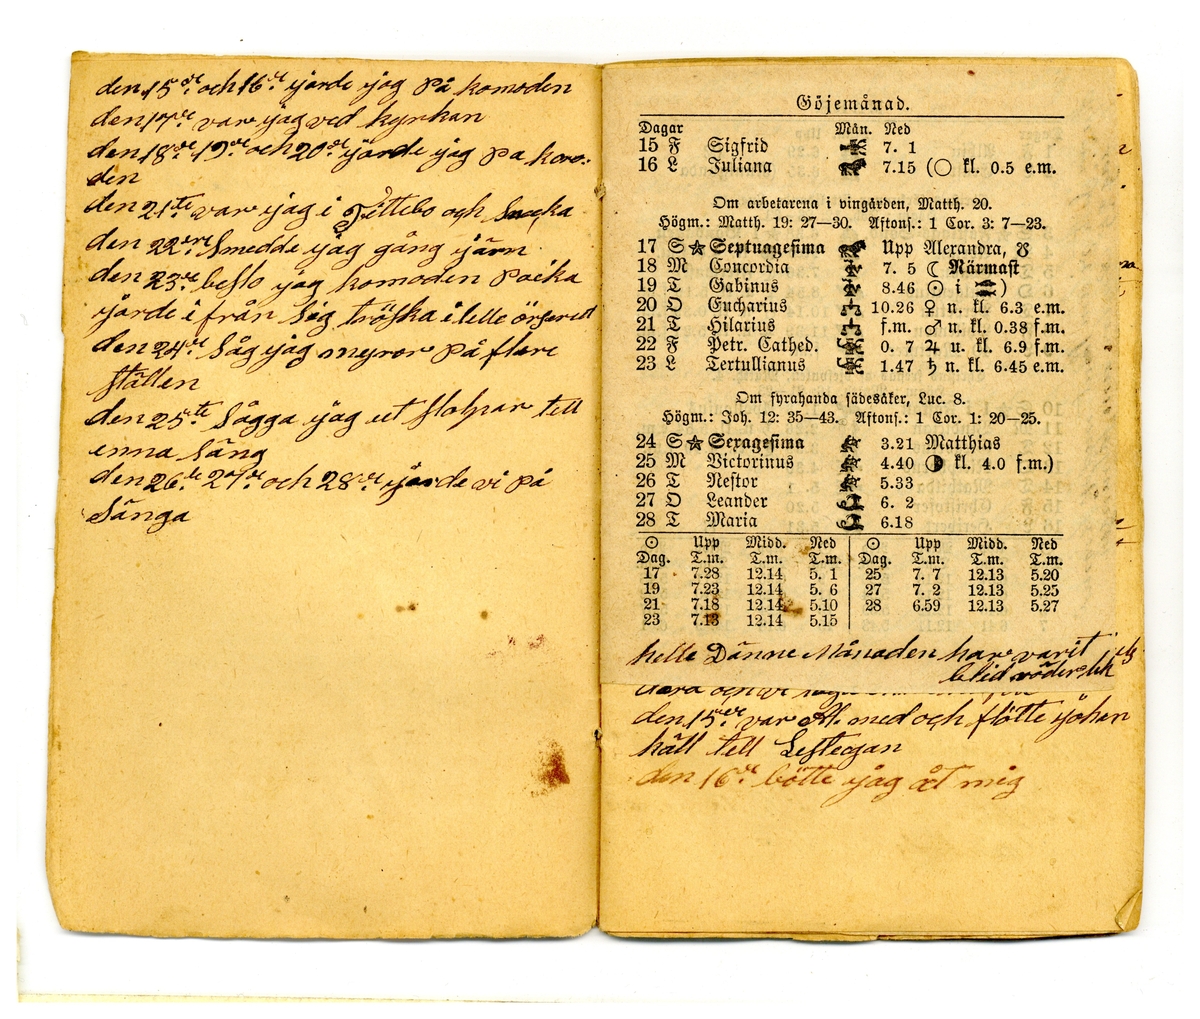 den 15de och 16de jorde jag på komoden
den 17de var jag ved kyrkan
den 18de 19de och 20de jorde jag pa komo-
den
den 21te var jag i Tittebo och Snacka
den 22dre Smedde jag gång järn
den 23de beslo jag komoden
jorde i från sig tröska i lelle
den 24de Såg jag myror på flere
ställen
den 25te Sågga jag ut stolpar tell
enna Säng
den 26te 27de och 28de jorde vi på
Sänga
Göjemånad.
Dagar Mån. Ned
15 F Sigfrid 7. 1
16 L Juliana 7.15 (○ kl. 0.5 e.m.
Om arbetarena i vingården, Matth. 20.
Högm.: Matth. 19: 27—30. Aftons.: 1 Cor. 3: 7—23.
17 S ☆ Septuagesima Upp Alexandra, ☋
18 M Concordia 7. 5 ☾ Närmast
19 T Gabinus 8.46 ☉ i ♓)
20 O Eucharius 10.26 ♀ n. kl. 6.3 e.m.
21 T Hilarius f.m. ♂ n. kl. 0.38 f.m.
22 F Petr. Cathed. 0. 7 ♃ u. kl. 6.9 f.m.
23 L Tertullianus 1.47 ♄ n. kl. 6.45 e.m.
Om fyrahanda sädesåker, Luc. 8.
Högm.: Joh. 12: 35—43. Aftons.: 1 Cor. 1: 20—25.
24 S ☆ Sexagesima 3.21 Matthias
25 M Victorinus 4.40 ◑ kl. 4.0 f.m.)
26 T Nestor 5.33
27 O Leander 6. 2
28 T Maria 6.18
☉ Upp Midd. Ned ☉ Upp Midd. Ned
Dag. T.m. T.m. T.m. Dag. T.m. T.m. T.m.
17 7.28 12.14 5. 1 25 7. 7 12.13 5.20
19 7.23 12.14 5. 6 27 7. 2 12.13 5.25
21 7.18 12.14 5.10 28 6.59 12.13 5.27
23 7.13 12.14 5.15
helle Dänne Månaden har varit
blid väderlek
den 15de var med och flötte
häll tell
den 16de bötte jag åt mig